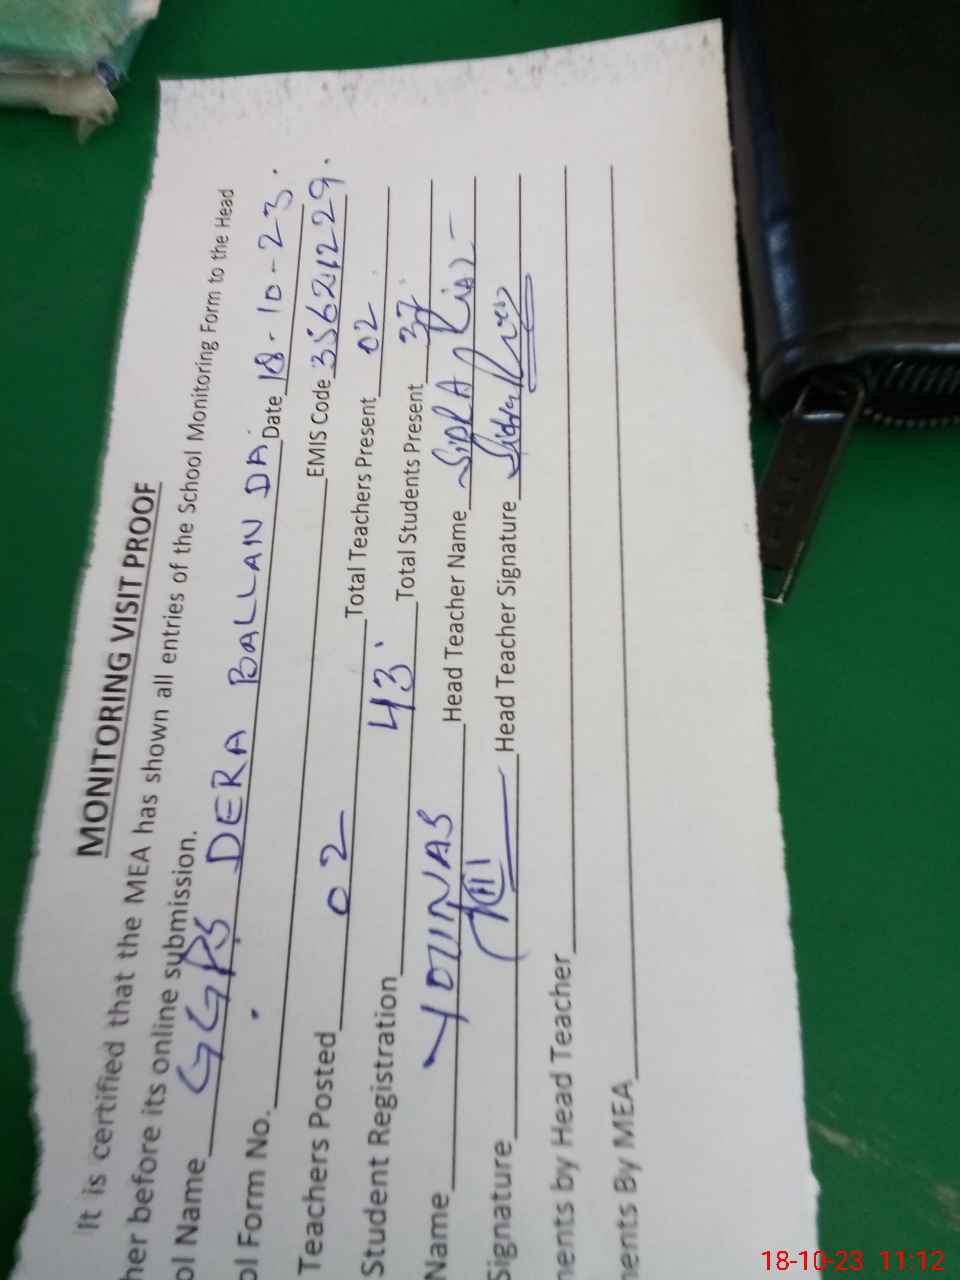 MONITORING VISIT PROOF
It is certified that the MEA has shown all entries of the School Monitoring Form to the Head
her before its online submission.
ol Name GGPS DERA BALLAN DA. Date 18-10-23.
ol Form No. EMIS Code 35621229.
Teachers Posted 02 Total Teachers Present 02
Student Registration 43 Total Students Present 37
Name YOUNAS Head Teacher Name
Signature Head Teacher Signature
nents by Head Teacher
nents By MEA
18-10-23 11:12